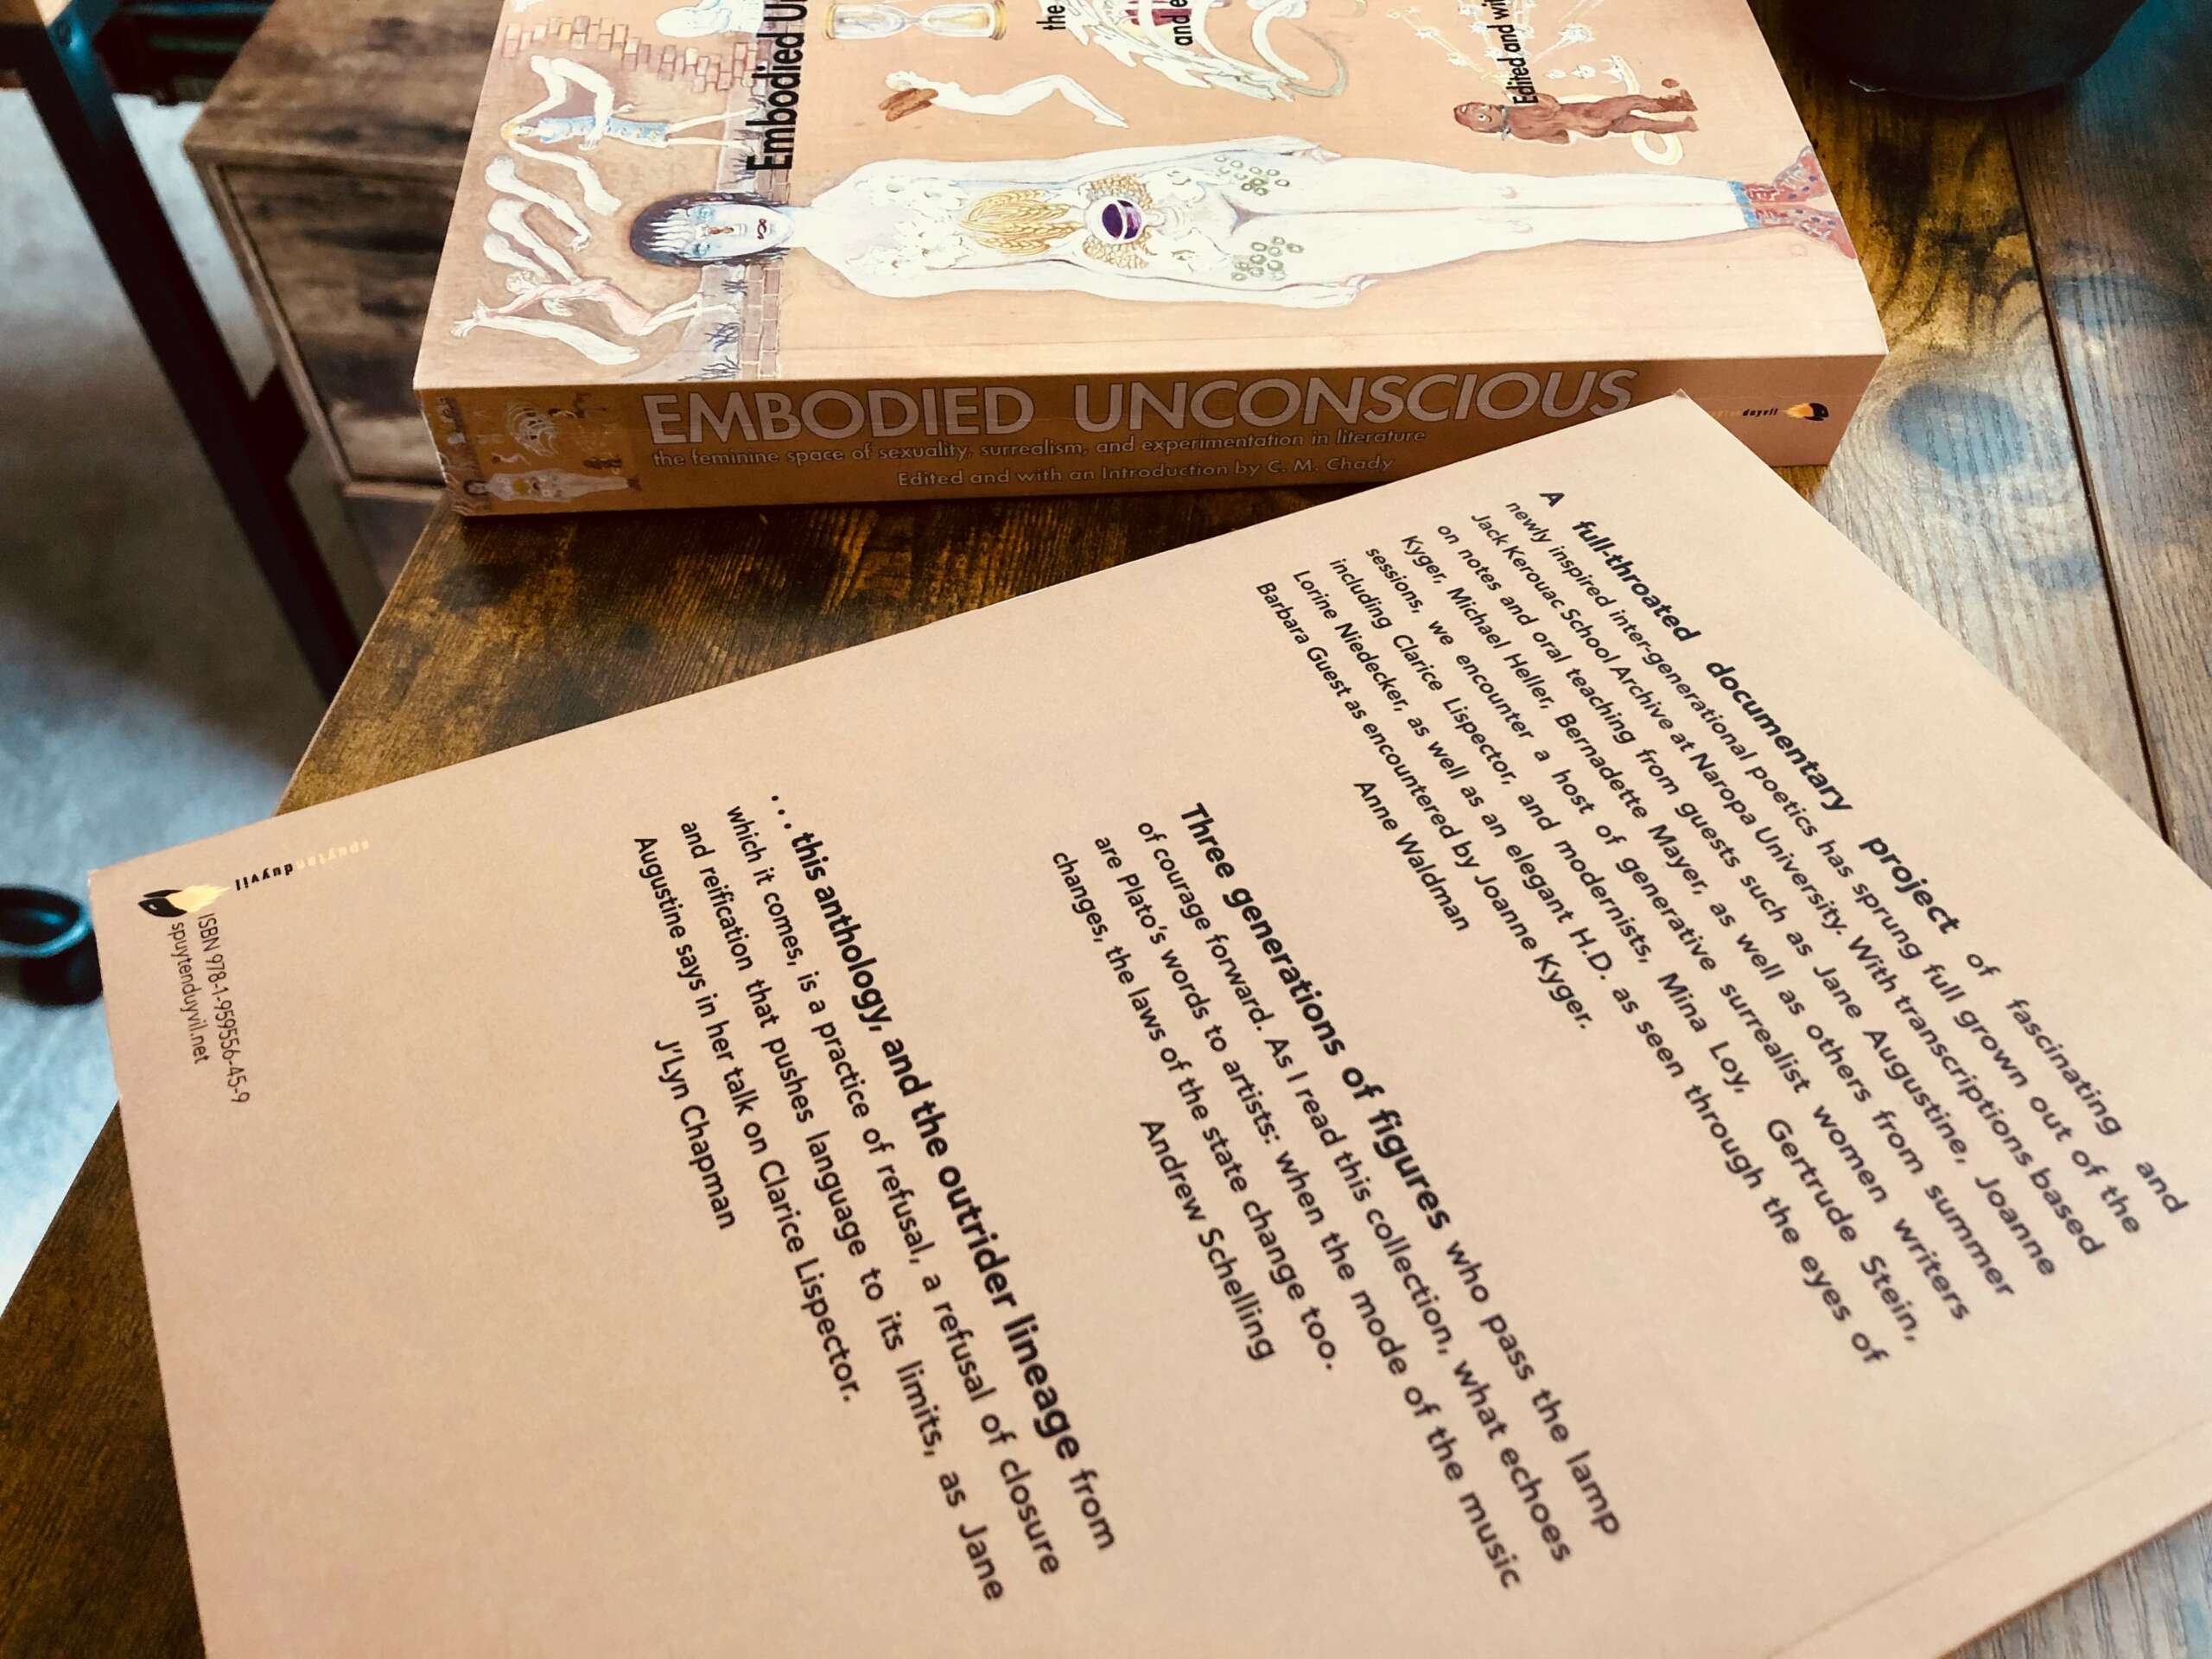 Embodied U
the
and e
Edited and wi
EMBODIED UNCONSCIOUS
the feminine space of sexuality, surrealism, and experimentation in literature
Edited and with an Introduction by C. M. Chady
duyvil
A full-throated documentary project of fascinating and
newly inspired inter-generational poetics has sprung full grown out of the
Jack Kerouac School Archive at Naropa University. With transcriptions based
on notes and oral teaching from guests such as Jane Augustine, Joanne
Kyger, Michael Heller, Bernadette Mayer, as well as others from summer
sessions, we encounter a host of generative surrealist women writers
including Clarice Lispector, and modernists, Mina Loy, Gertrude Stein,
Lorine Niedecker, as well as an elegant H.D. as seen through the eyes of
Barbara Guest as encountered by Joanne Kyger.
Anne Waldman
Three generations of figures who pass the lamp
of courage forward. As I read this collection, what echoes
are Plato's words to artists: when the mode of the music
changes, the laws of the state change too.
Andrew Schelling
. . . this anthology, and the outrider lineage from
which it comes, is a practice of refusal, a refusal of closure
and reification that pushes language to its limits, as Jane
Augustine says in her talk on Clarice Lispector.
J'Lyn Chapman
spuytenduyvil
ISBN 978-1-959556-45-9
spuytenduyvil.net